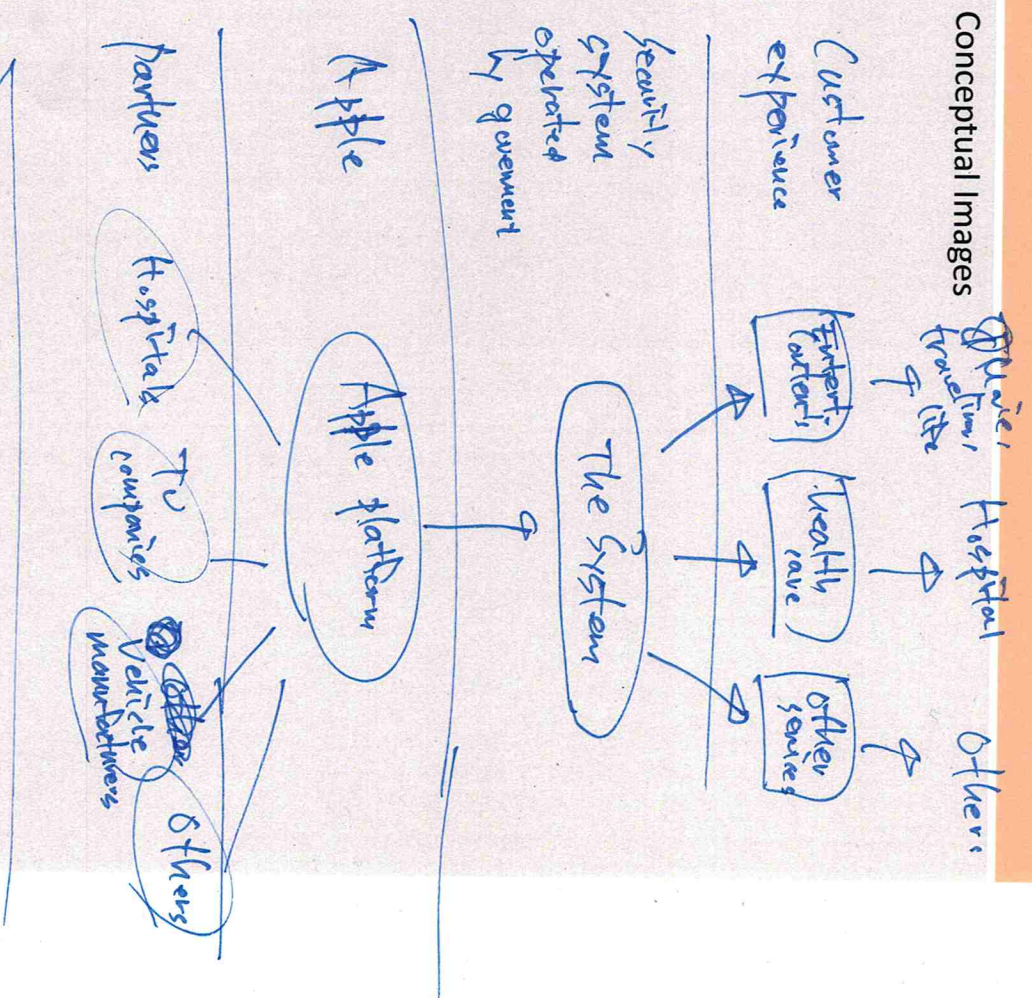 Conceptual Images
Movie,
traveling,
life
Hospital
Others
Customer
experience
Entert.
contents
health
care
other
services
Security
system
operated
by government
The System
Apple
Apple platform
Partners
Hospitals
TV
companies
Vehicle
manufacturers
Others